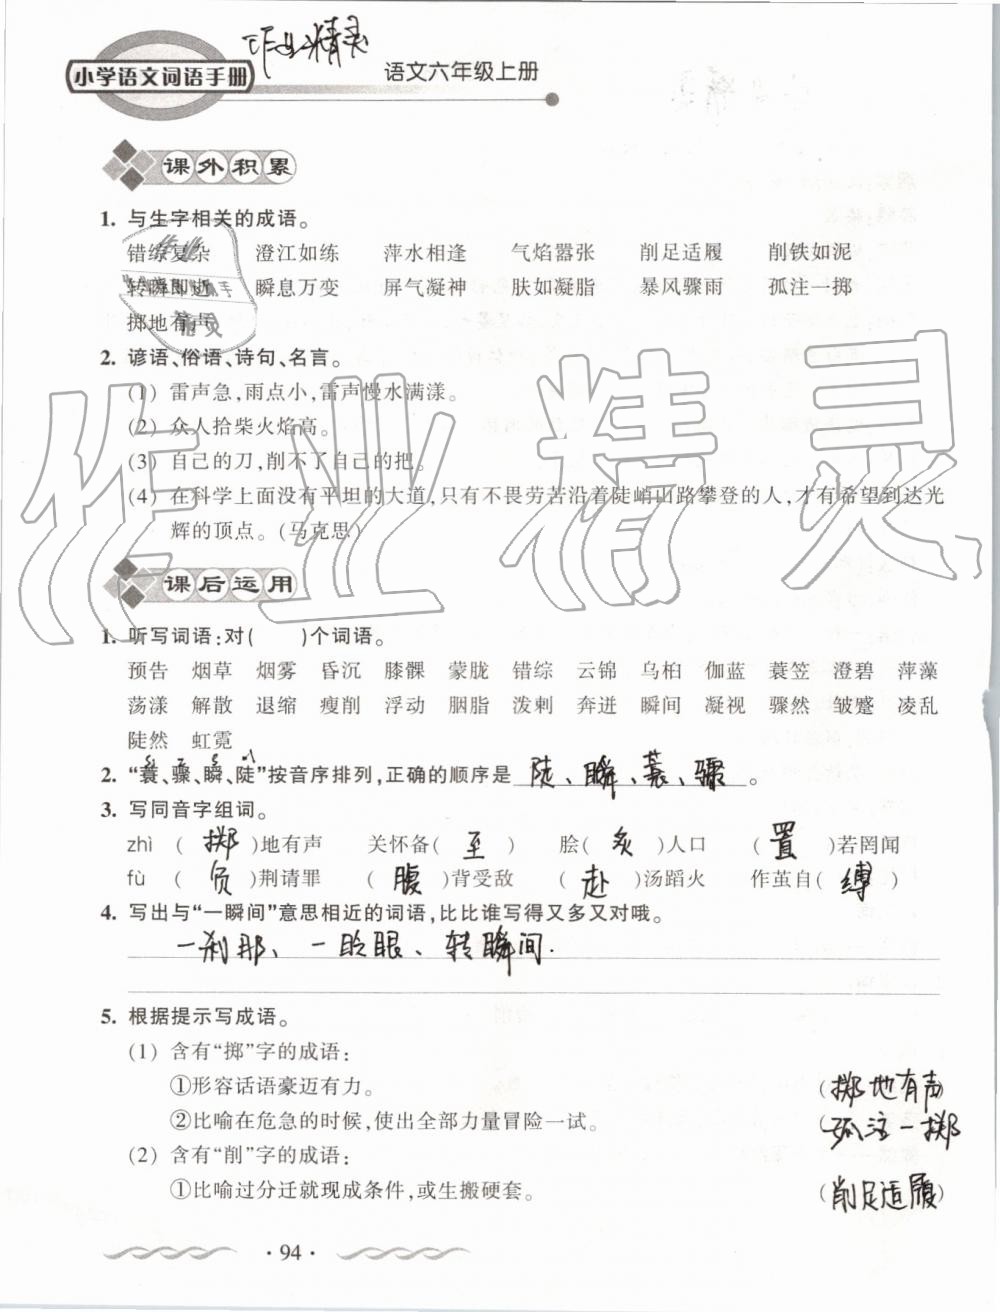 作业精灵
小学语文词语手册
语文六年级上册
课外积累
1. 与生字相关的成语。
错综复杂 澄江如练 萍水相逢 气焰嚣张 削足适履 削铁如泥
转瞬即逝 瞬息万变 屏气凝神 肤如凝脂 暴风骤雨 孤注一掷
掷地有声
2. 谚语、俗语、诗句、名言。
(1) 雷声急,雨点小,雷声慢水满漾。
(2) 众人拾柴火焰高。
(3) 自己的刀,削不了自己的把。
(4) 在科学上面没有平坦的大道,只有不畏劳苦沿着陡峭山路攀登的人,才有希望到达光
辉的顶点。(马克思)
作业精灵
课后运用
1. 听写词语:对( )个词语。
预告 烟草 烟雾 昏沉 膝髁 蒙胧 错综 云锦 乌桕 伽蓝 蓑笠 澄碧 萍藻
荡漾 解散 退缩 瘦削 浮动 胭脂 泼剌 奔迸 瞬间 凝视 骤然 皱蹙 凌乱
陡然 虹霓
2. “蓑、骤、瞬、陡”按音序排列,正确的顺序是 陡、瞬、蓑、骤 。
3. 写同音字组词。
zhì ( 掷 )地有声 关怀备( 至 ) 脍( 炙 )人口 ( 置 )若罔闻
fù ( 负 )荆请罪 ( 腹 )背受敌 ( 赴 )汤蹈火 作茧自( 缚 )
4. 写出与“一瞬间”意思相近的词语,比比谁写得又多又对哦。
一刹那、一眨眼、转瞬间.
5. 根据提示写成语。
(1) 含有“掷”字的成语:
①形容话语豪迈有力。 (掷地有声
②比喻在危急的时候,使出全部力量冒险一试。 (孤注一掷
(2) 含有“削”字的成语:
①比喻过分迁就现成条件,或生搬硬套。 (削足适履)
· 94 ·